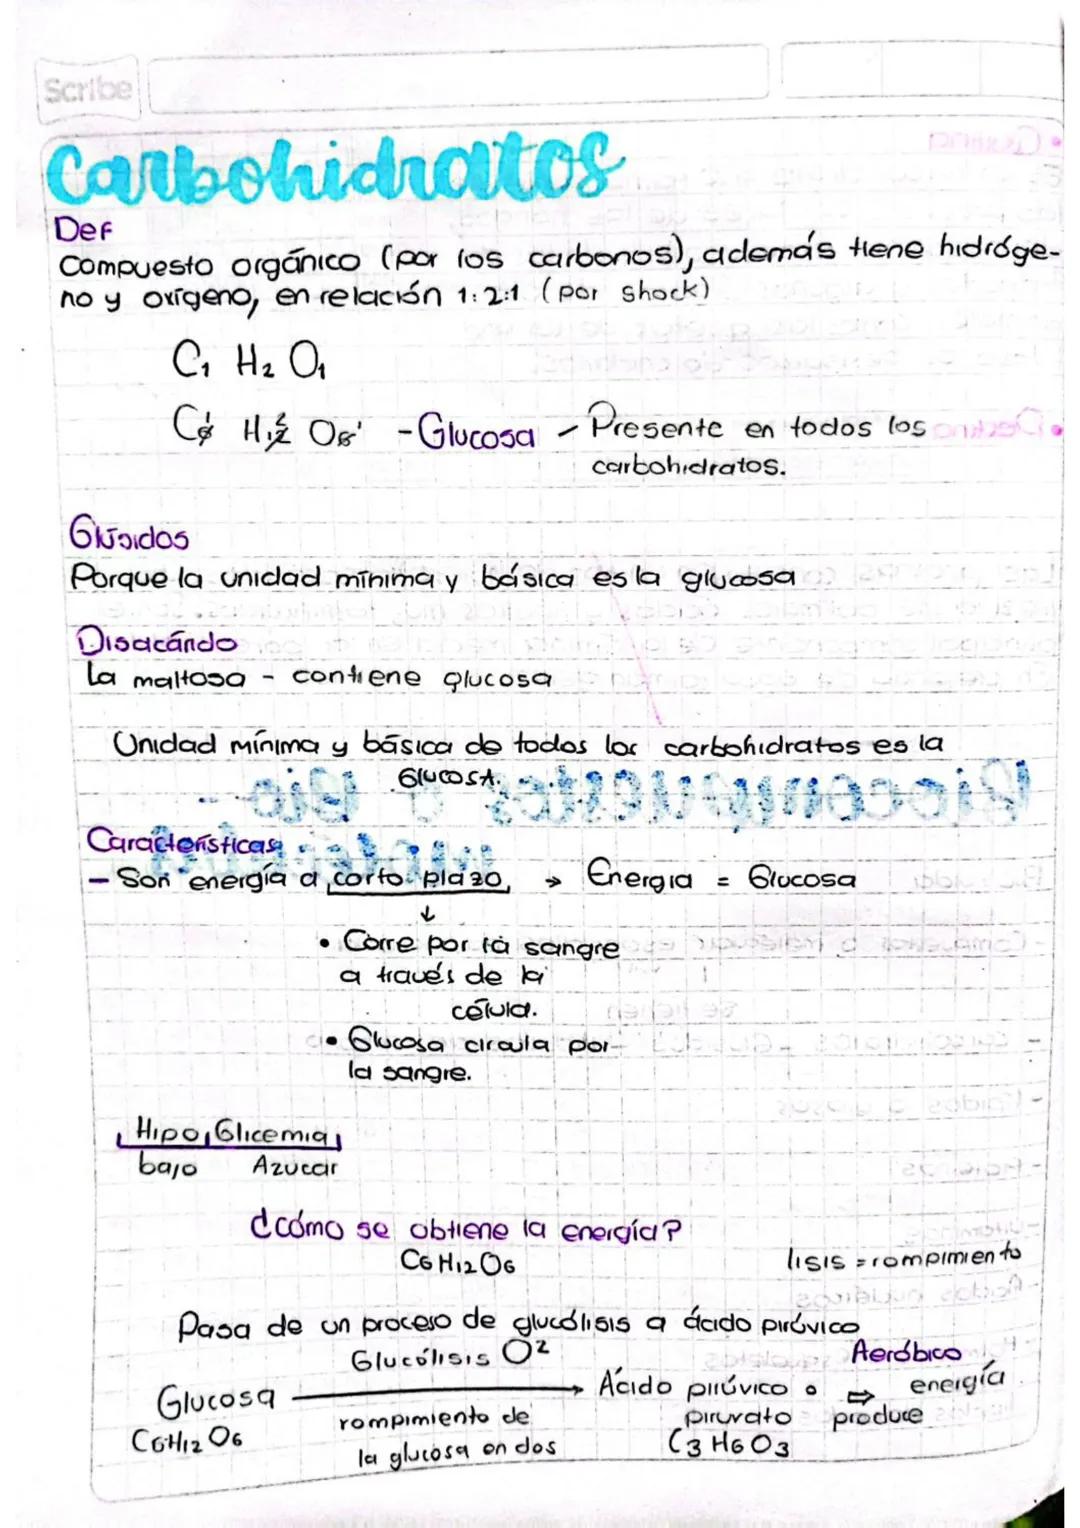 Scribe
Carbohidratos
Def
Compuesto orgánico (por los carbonos), además tiene hidróge-
no y oxígeno, en relación 1:2:1 (por shock)
C1 H2 O1
C6 1 H12 2 O6 1 - Glucosa - Presente en todos los
carbohidratos.
Glúsidos
Porque la unidad mínima y básica es la glucosa
Disacárido
La maltosa - contiene glucosa
Unidad mínima y básica de todos los carbohidratos es la
Glucosa.
Características
- Son energía a corto plazo → Energia = Glucosa
↓
• Corre por la sangre
a través de la
célula.
• Glucosa circula por
la sangre.
Hipo Glicemia
bajo Azucar
¿cómo se obtiene la energía?
C6 H12 O6
lisis = rompimiento
Pasa de un proceso de glucólisis a ácido pirúvico
Glucólisis O2 Aeróbico
Glucosa → Ácido pirúvico o ⇒ energía
rompimiento de piruvato produce
C6H12 O6 la glucosa en dos C3 H6 O3